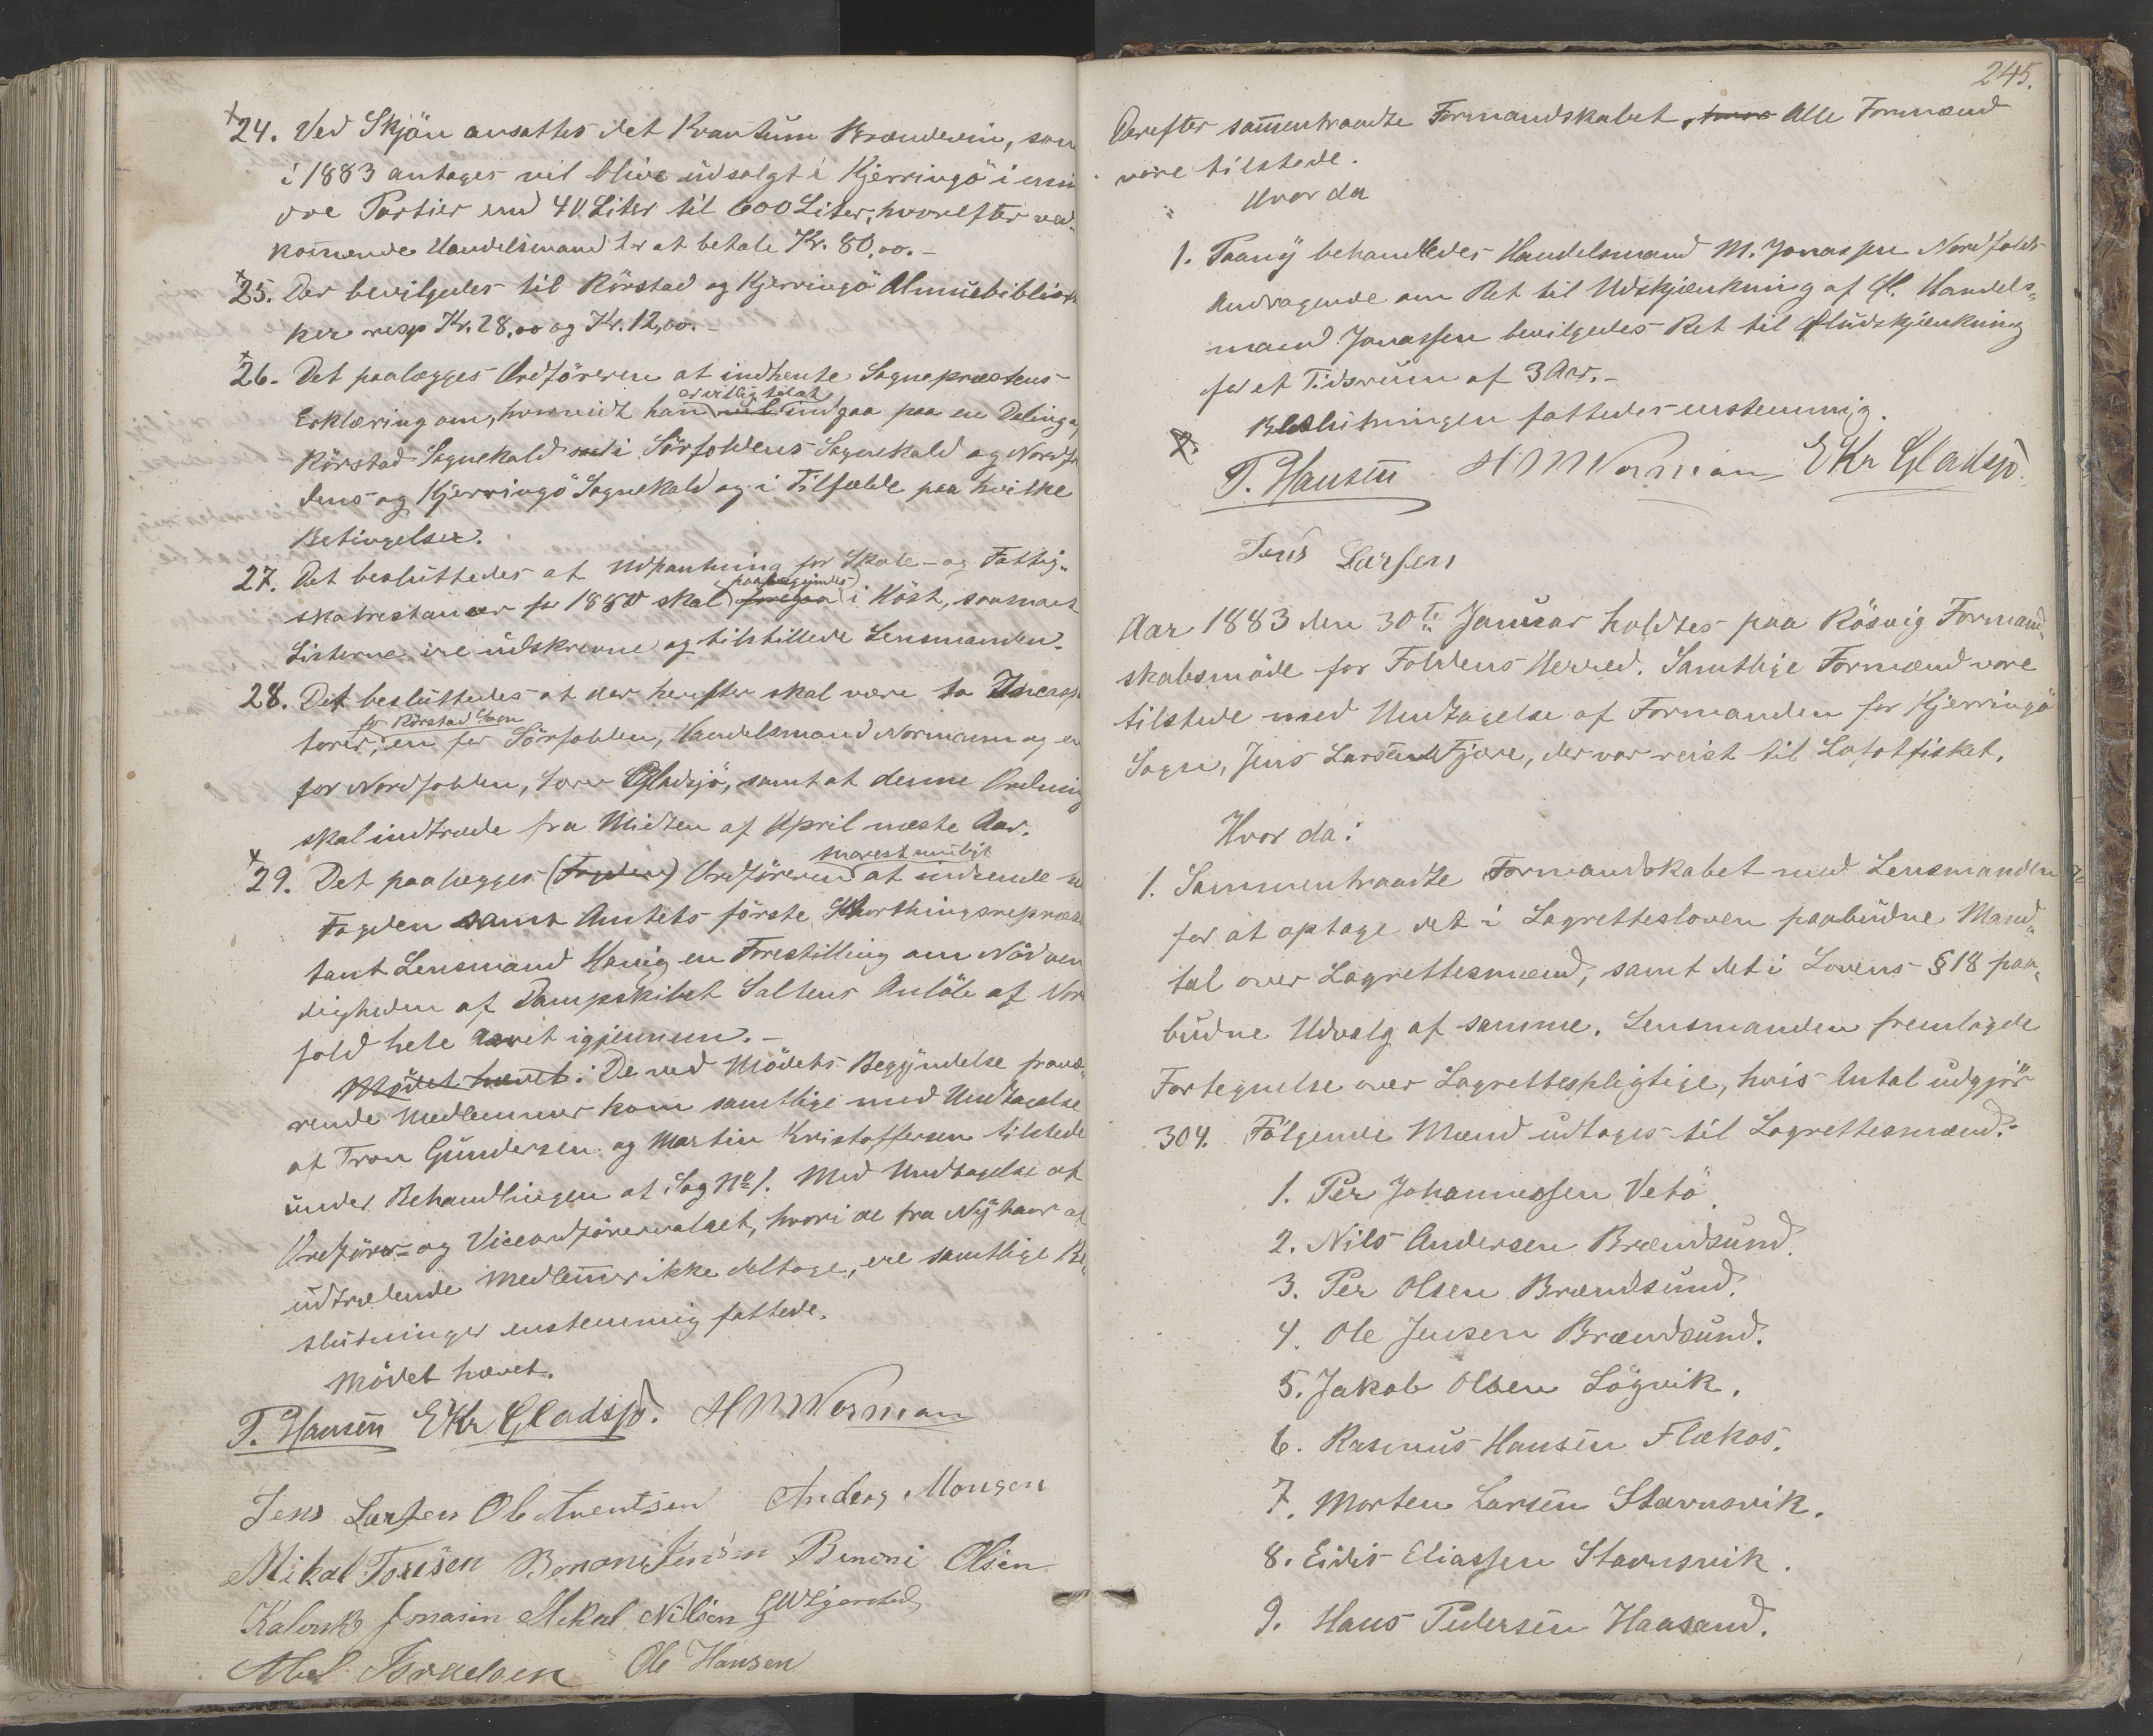 24. Ved Skjön ansattes det Kvantum Brændevin, som
i 1883 antages vil blive udsolgt i Kjerringö i min
dre Partier end 40 Liter til 600 Liter, hvorefter ved-
kommende Handelsmand har at betale Kr. 80,00.-
25. Der bevilgedes til Rörstad og Kjerringö Almuebibliothe
ker resp Kr. 28,00 og Kr. 12,00.-
26. Det paalægges Ordföreren at indhente Sognepræstens
er villig til at
Erklæring om, hvorvidt han vil indgaa paa en Deling af
Rörstad Sognekald i Sörfoldens Sognekald og Nordfol
dens og Kjerringö Sognekald og i Tilfælde paa hvilke
Betingelser.
27. Det besluttedes at Udpantning for Skole- og Fattig-
paabegyndes
skatrestancer for 1880 skal foregaa i Höst, saasnart
Listerne ere udskrevne og tilstillede Lensmanden.
28. Det besluttedes at der herefter skal være to Incassa
for Rörstad Sogn
torer, en for Sörfolden, Handelsmand Normann og en
for Nordfolden, Gladsjö, samt at denne Ordning
skal indtræde fra Midten af April næste Aar.
snarest muligt
29. Det paalægges (Fogden) Ordföreren at indsende til
Fogden samt Amtets förste Storthingsrepræsen
tant Lensmand en Forestilling om Nödven
digheden af Dampskibet Saltens Anlöb af Nord
fold hele Aaret igjennem.-
Mödet hævet. De ved Mödets Begyndelse fravæ-
rende Medlemmer kom samtlige med Undtagelse
af Tron Gundersen og Martin Kristoffersen tilstede
under Behandlingen af Sag No 1. Med Undtagelse af
Ordförer- og Viceordförervalget, hvori de fra Nytaar af
udtrædende Medlemmer ikke deltoge, ere samtlige Be-
slutninger enstemmig fattede.
Mödet hævet.
P. Hansen EKr Gladsjö. H M Norman
Jens Larsen Ol Arentsen Anders Monsen
Mikal Torisen Benoni Jensen Benoni Olsen
Jonasen Mekal Nilsen
Abel Israelsen Ole Hansen
245.
Derefter sammentraadte Formandskabet, Alle Formænd
vare tilstede.
Hvor da
1. Paany behandledes Handelsmand M. Jonassen Nordfolds
Andragende om Ret til Udskjænkning af Øl. Handels-
mand Jonassen bevilgedes Ret til Øludskjænkning
for et Tidsrum af 3 Aar.-
Beslutningen fattedes enstemmig.
P. Hansen H M Norman EKr Gladsjö.
Jens Larsen
Aar 1883 den 30te Januar holdtes paa Rösvig Formand-
skabsmöde for Foldens Herred. Samtlige Formænd vare
tilstede med Undtagelse af Formanden for Kjerringö
Sogn, Jens Larsen Fjære, der var reist til Lofotfisket.
Hvor da:
1. Sammentraadte Formandskabet med Lensmanden
for at optage det i Lagrettesloven paabudne Mand-
tal over Lagrettesmænd, samt det i Lovens § 18 paa-
budne Udvalg af samme. Lensmanden fremlagde
Fortegnelse over Lagrettespligtige, hvis Antal udgjör
304. Fölgende Mænd udtages til Lagrettesmænd:
1. Per Johannessen Vetö.
2. Nils Andersen Brændsund.
3. Per Olsen Brændsund.
4. Ole Jensen Brændsund.
5. Jakob Olsen Lögvik.
6. Rasmus Hansen Flækos.
7. Morten Larsen Stavnsvik.
8. Eidis Eliassen Stavnsvik.
9. Hans Pedersen Haasand.